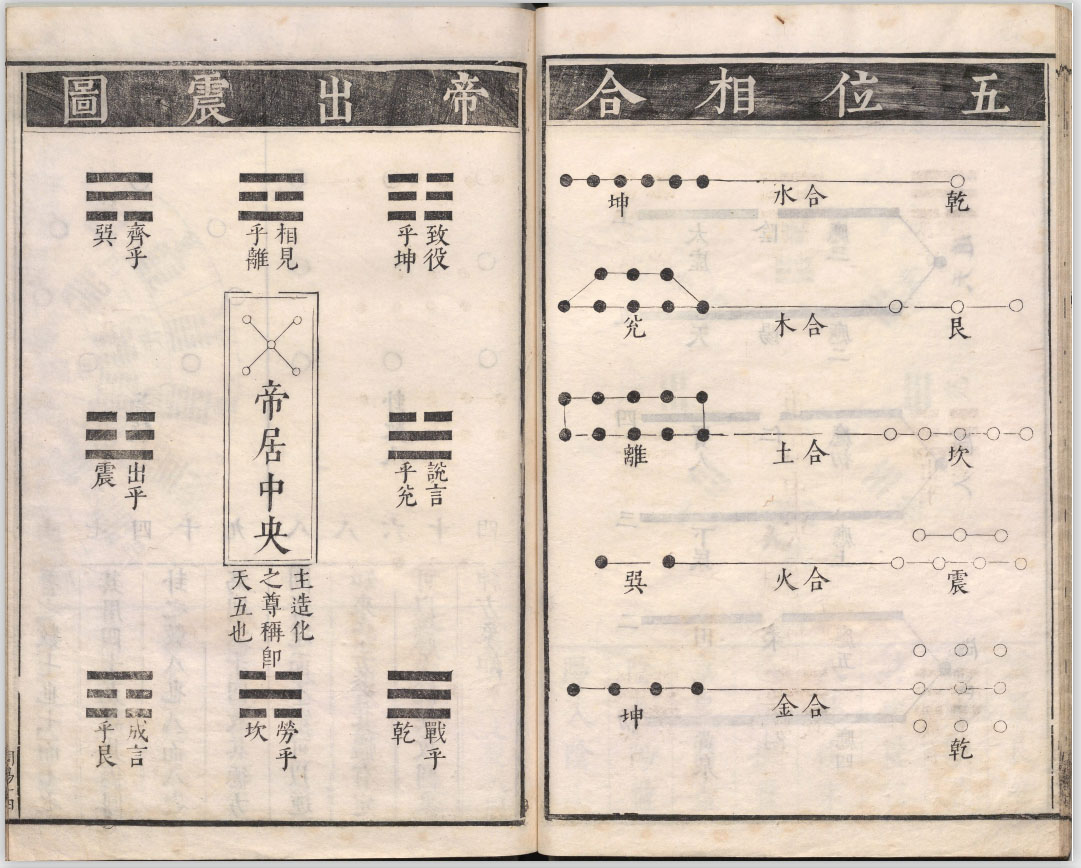 五位相合
乾
合水
坤
艮
合木
兊
坎
合土
離
震
合火
巽
乾
合金
坤
帝出震圖
致役
乎坤
相見
乎離
齊乎
巽
說言
乎兊
帝居中央
主造化
之尊稱卽
天五也
出乎
震
戰乎
乾
勞乎
坎
成言
乎艮